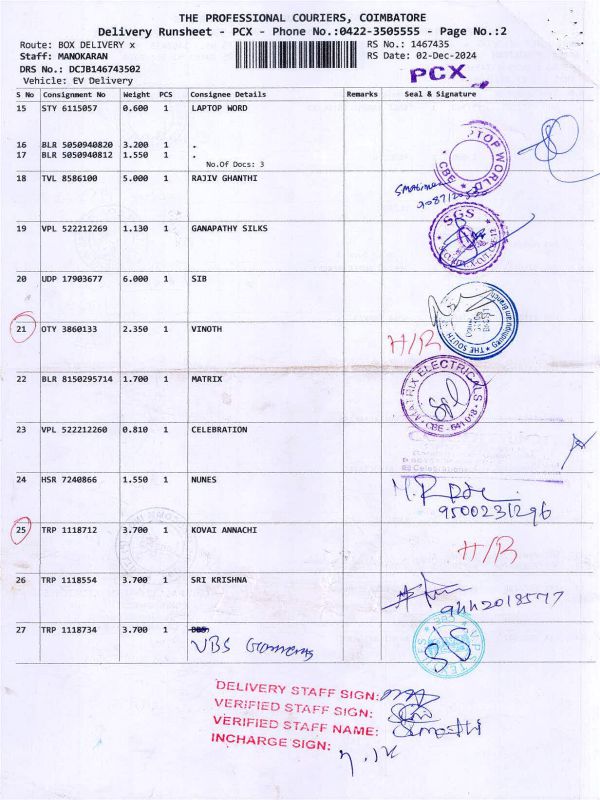 THE PROFESSIONAL COURIERS, COIMBATORE
Delivery Runsheet - PCX - Phone No.:0422-3505555 - Page No.:2
Route: BOX DELIVERY x
RS No.: 1467435
Staff: MANOKARAN
RS Date: 02-Dec-2024
DRS No.: DCJB146743502
Vehicle: EV Delivery
PCX
S No Consignment No Weight PCS Consignee Details Remarks Seal & Signature
15 STY 6115057 0.600 1 LAPTOP WORD
16 BLR 5050940820 3.200 1 .
17 BLR 5050940812 1.550 1 .
No.Of Docs: 3
LAPTOP WORLD CBE
18 TVL 8586100 5.000 1 RAJIV GHANTHI
19 VPL 522212269 1.130 1 GANAPATHY SILKS
SGS
20 UDP 17903677 6.000 1 SIB
THE SOUTH
21 OTY 3860133 2.350 1 VINOTH
H/R
22 BLR 8150295714 1.700 1 MATRIX
MATRIX ELECTRICALS
CBE - 641 018
23 VPL 522212260 0.810 1 CELEBRATION
Celebration
24 HSR 7240866 1.550 1 NUNES
9500231296
25 TRP 1118712 3.700 1 KOVAI ANNACHI
H/R
26 TRP 1118554 3.700 1 SRI KRISHNA
9442018577
27 TRP 1118734 3.700 1
VBS Garments
DELIVERY STAFF SIGN:
VERIFIED STAFF SIGN:
VERIFIED STAFF NAME:
INCHARGE SIGN: